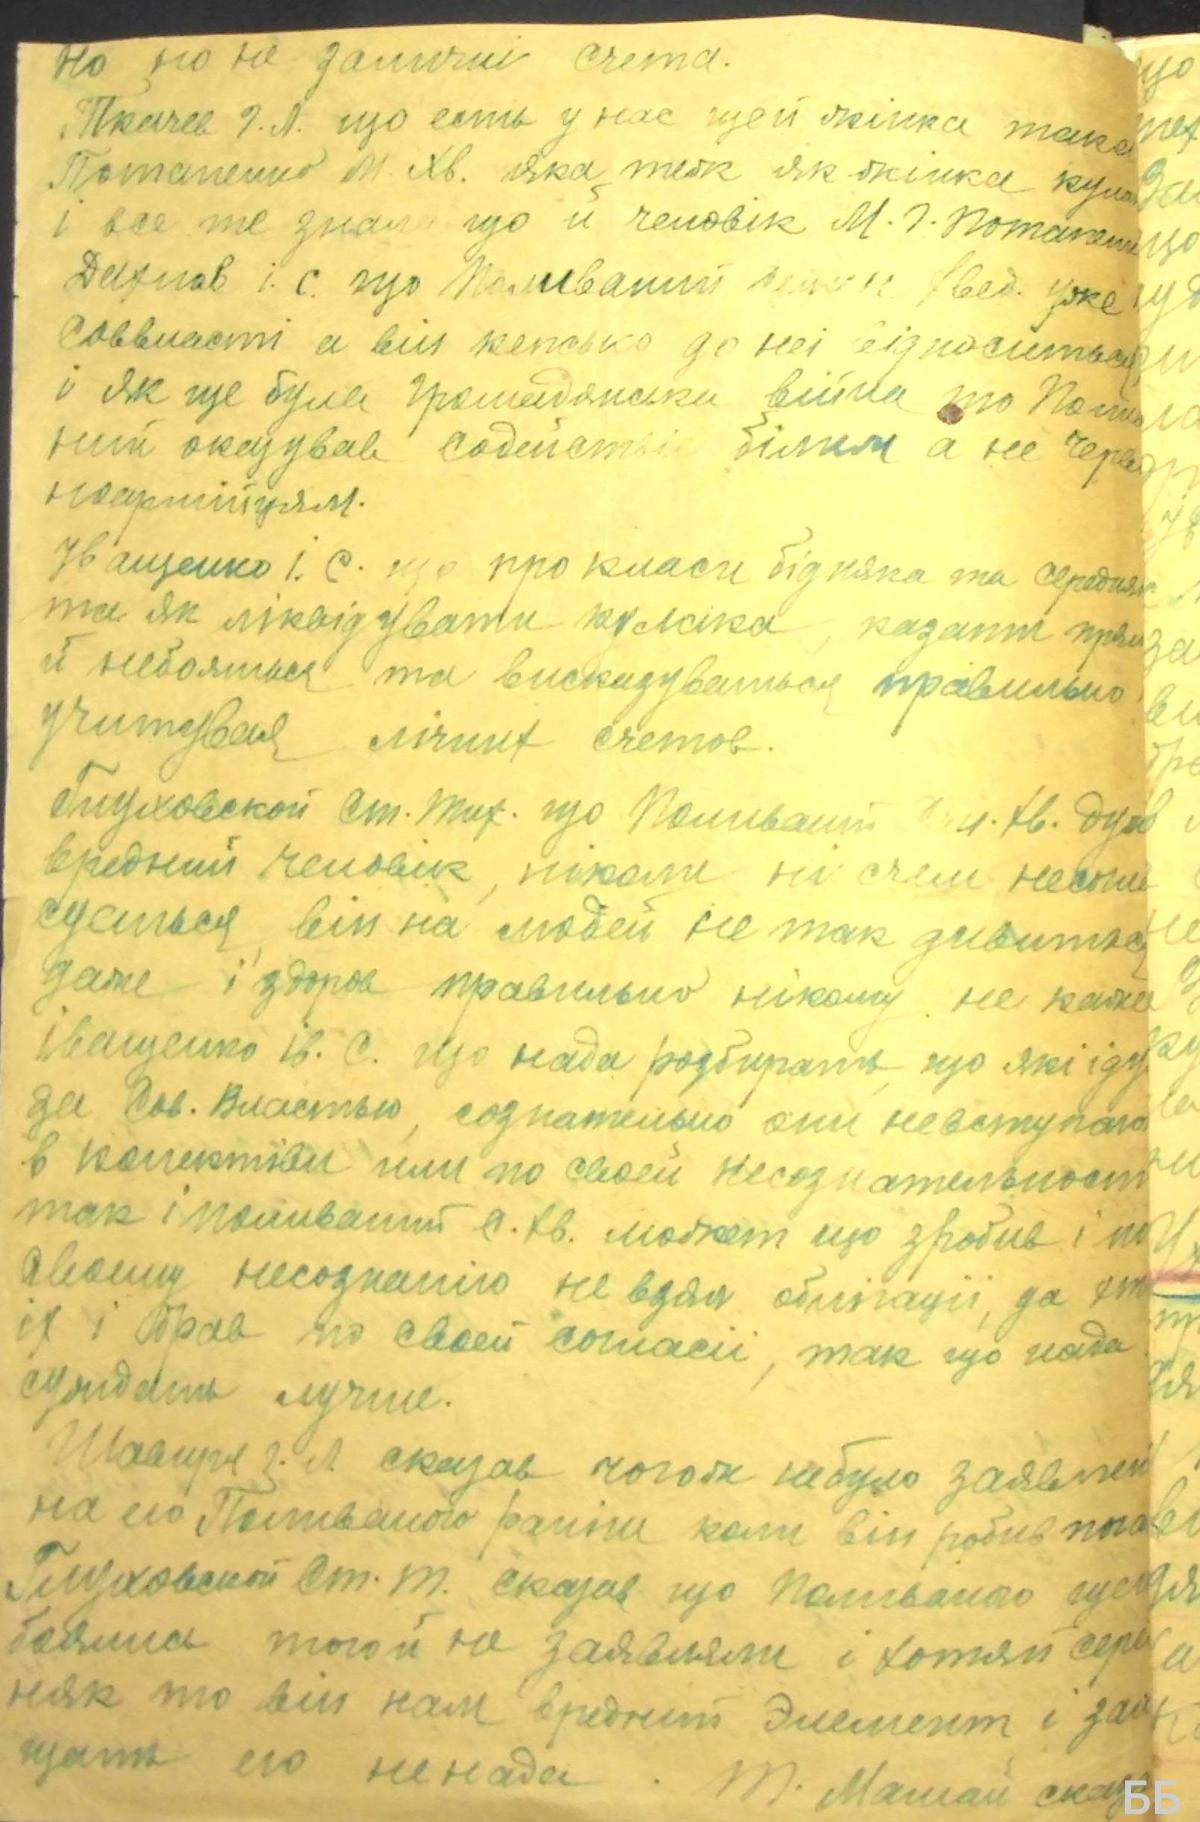 но но не за личні счета.
Ткачев Г.Л. що есть у нас щей жінка така
Потапенко М. Хв. яка теж як жінка
і все те знала що й человік М. Г.
І. С. що Поливаний Хвед. уже
Соввласті а він кепсько до неї відноситься
і як ще була громадянська війна то
ний оказував содействіе білим а не черво
ноармійцям.
Іващенко І. С. що про класи бідняка та середняк
та як ліквідувати куляка, казати прям
й небояться та вискадуваться правильно
учитувая лічних счетов.
Глуховской Ст. Тих. що Поливаний Хв. дуж
вредний человік, ніколи ні с ким
сується, він на людей не так дивится
даже і здоров правильно нікому не каже
Іващенко Ів. С. що нада розбирать, що які іду
за Сов. Властью, сознательно они невступаю
в колективи или по своей несознательност
так і Поливаний С. Хв. может що зробив і по
своему несознанію не взял облігації, да
іх і брав по своей согласіі, так що нада
суждать лучше.
Шавиря Г. Л. сказав чогож небуло заявлен
на его Поливаного раніш коли він робив
Глуховской Ст. Т. сказав що Поливаного
боялись того й не заявляли і хотяй сере
няк то він нам вредний Элемент і защи
щать его ненада. Т. Мамай сказа
ББ